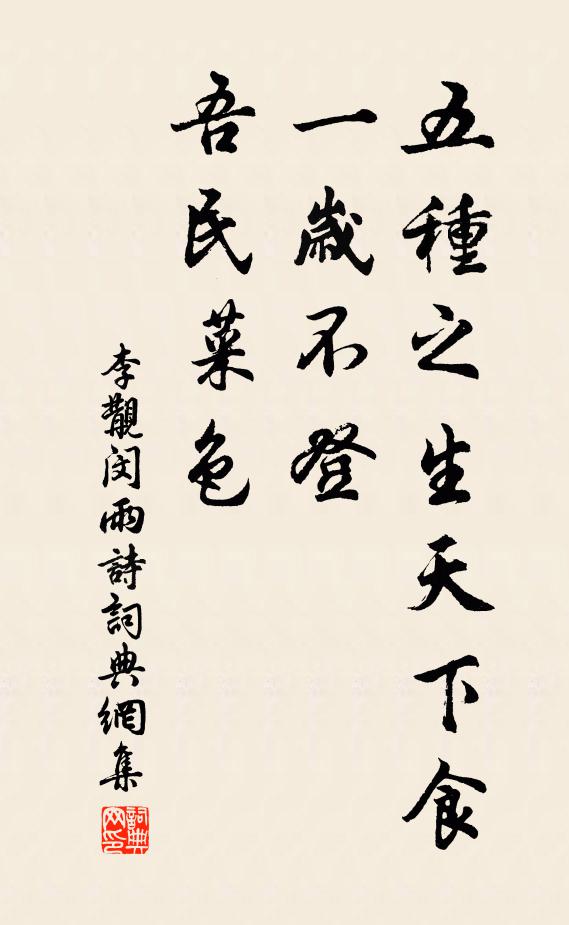 五種之生天下食
一歲不登
吾民菜色
李覯閔雨詩詞典網集
詞典網印